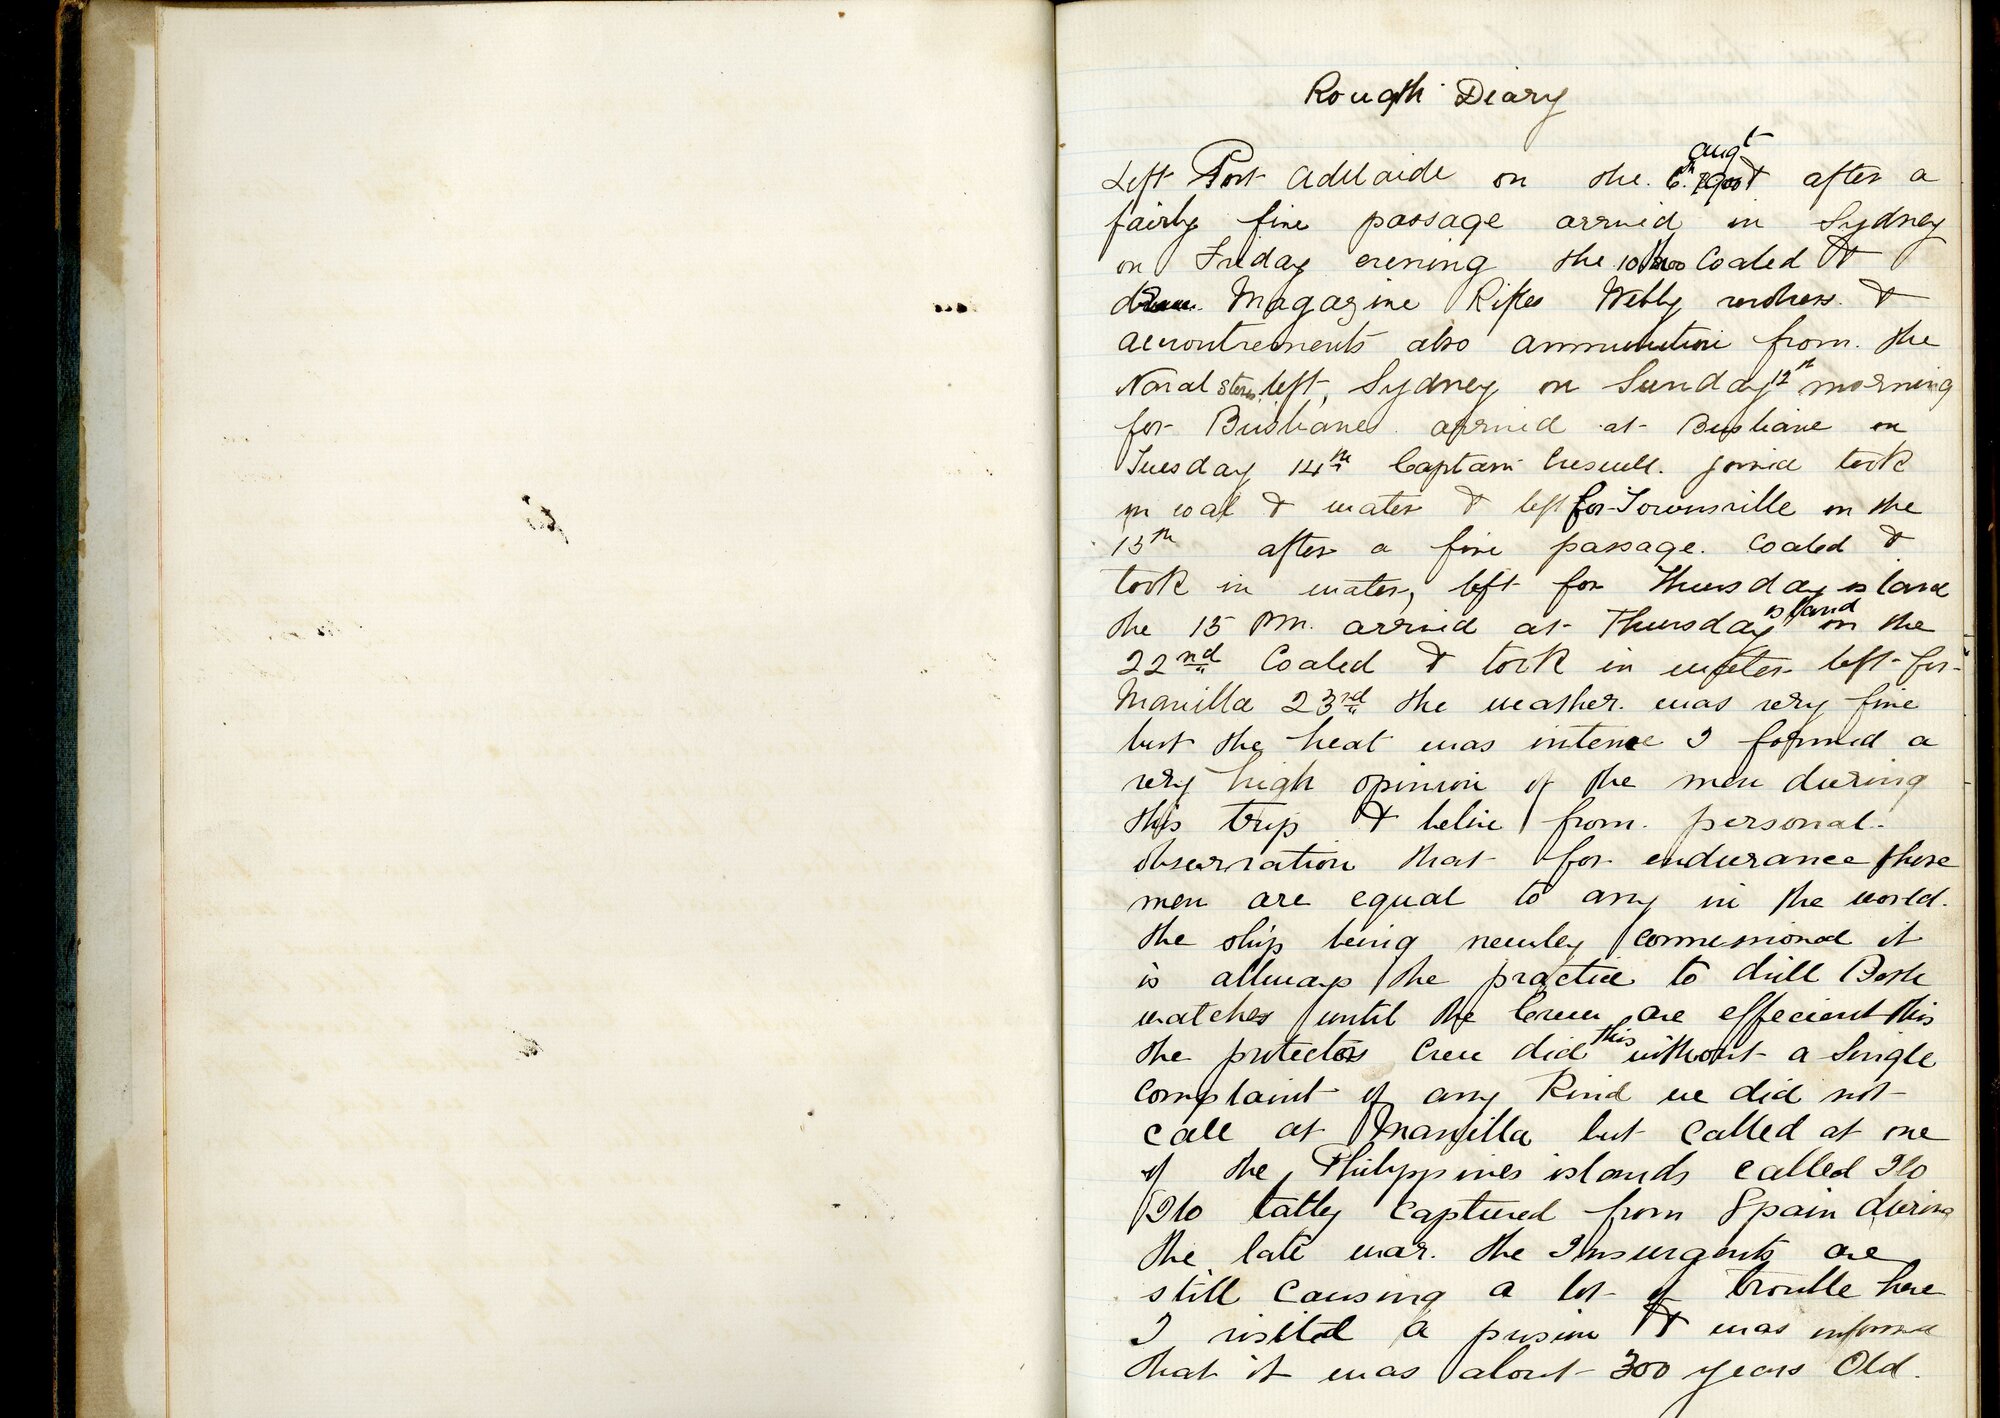 Rough Diary
Left Port Adelaide on the 6th Augt 1900 & after a
fairly fine passage arrived in Sydney
on Friday evening the 10th Coaled &
drew Magazine Rifles Webly revolvers &
accoutrements also ammunition from the
Naval stores, left, Sydney on Sunday 12th morning
for Brisbane arrived at Brisbane on
Tuesday 14th Captain Creswell joined took
in coal & water & left for Townsville on the
15th after a fine passage. Coaled &
took in water, left for Thursday island
the 15 PM. arrived at Thursday island on the
22nd Coaled & took in water left for
Manilla 23rd the weather was very fine
but the heat was intense I formed a
very high opinion of the men during
this trip & belive from personal
observation that for endurance these
men are equal to any in the world.
the ship being newley commissioned it
is allways the practice to drill Both
watches until the Crew are effecient this
the protectors Crew did this without a Single
Complaint of any Kind we did not
Call at Manilla but Called at one
of the Philyppines islands called Ilo
Ilo latly Captured from Spain during
the late war. the Insurgents are
still Causing a lot of trouble here
I visited a prision & was informed
that it was about 300 years Old.